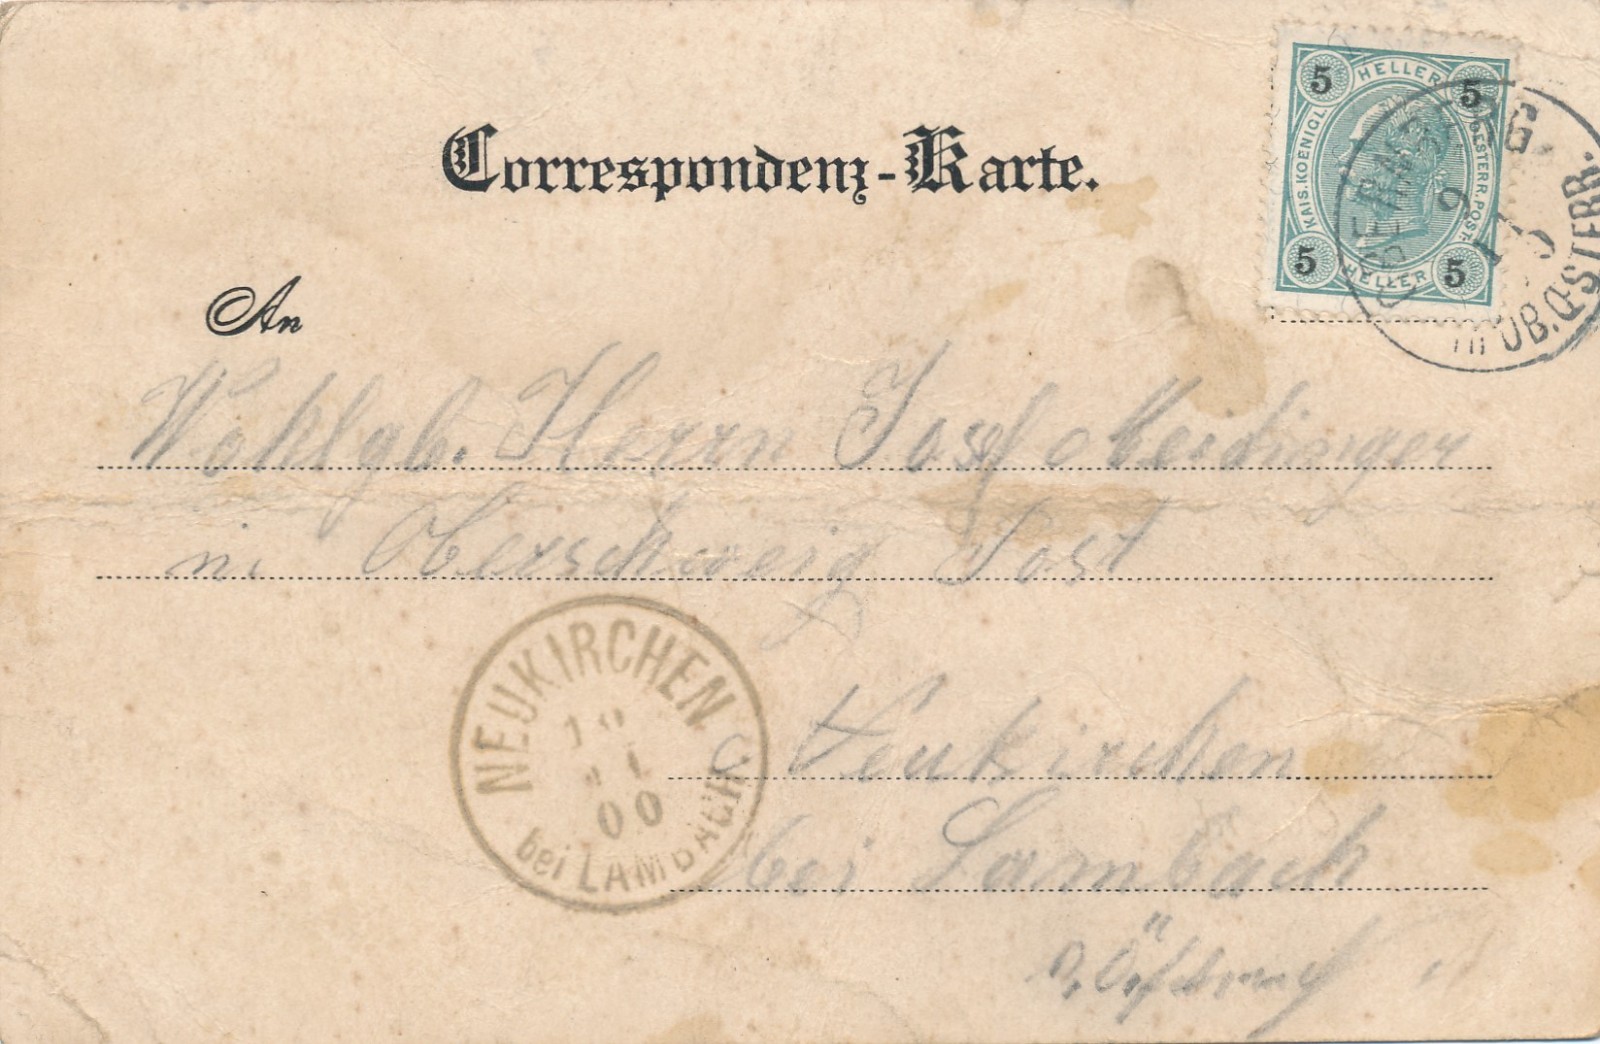 Correspondenz-Karte.
5 HELLER 5
KAIS. KOENIGL. OESTERR. POST.
5 HELLER 5
OB.ŒSTERR.
An
Wohlgb. Herrn Josef
in Oberschweig Post
NEUKIRCHEN
00
bei LAMBACH
Neukirchen
bei Lambach